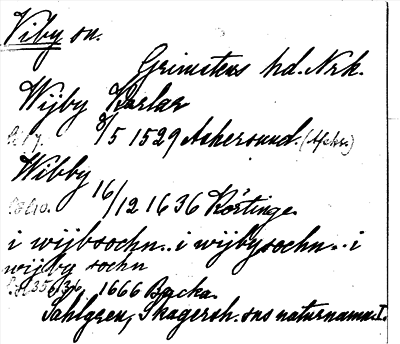 Viby sn.
Grimstens hd. Nrk.
Wijby Karlar
8/5 1529 Askersund. (Afskr.)
Wibby
16/12 1636 Körtinge.
i wijbsochn.. i wijbysochn.. i
wijby sochn
1666 Backa.
Sahlgren, Skagersh. sns naturnamn. I.